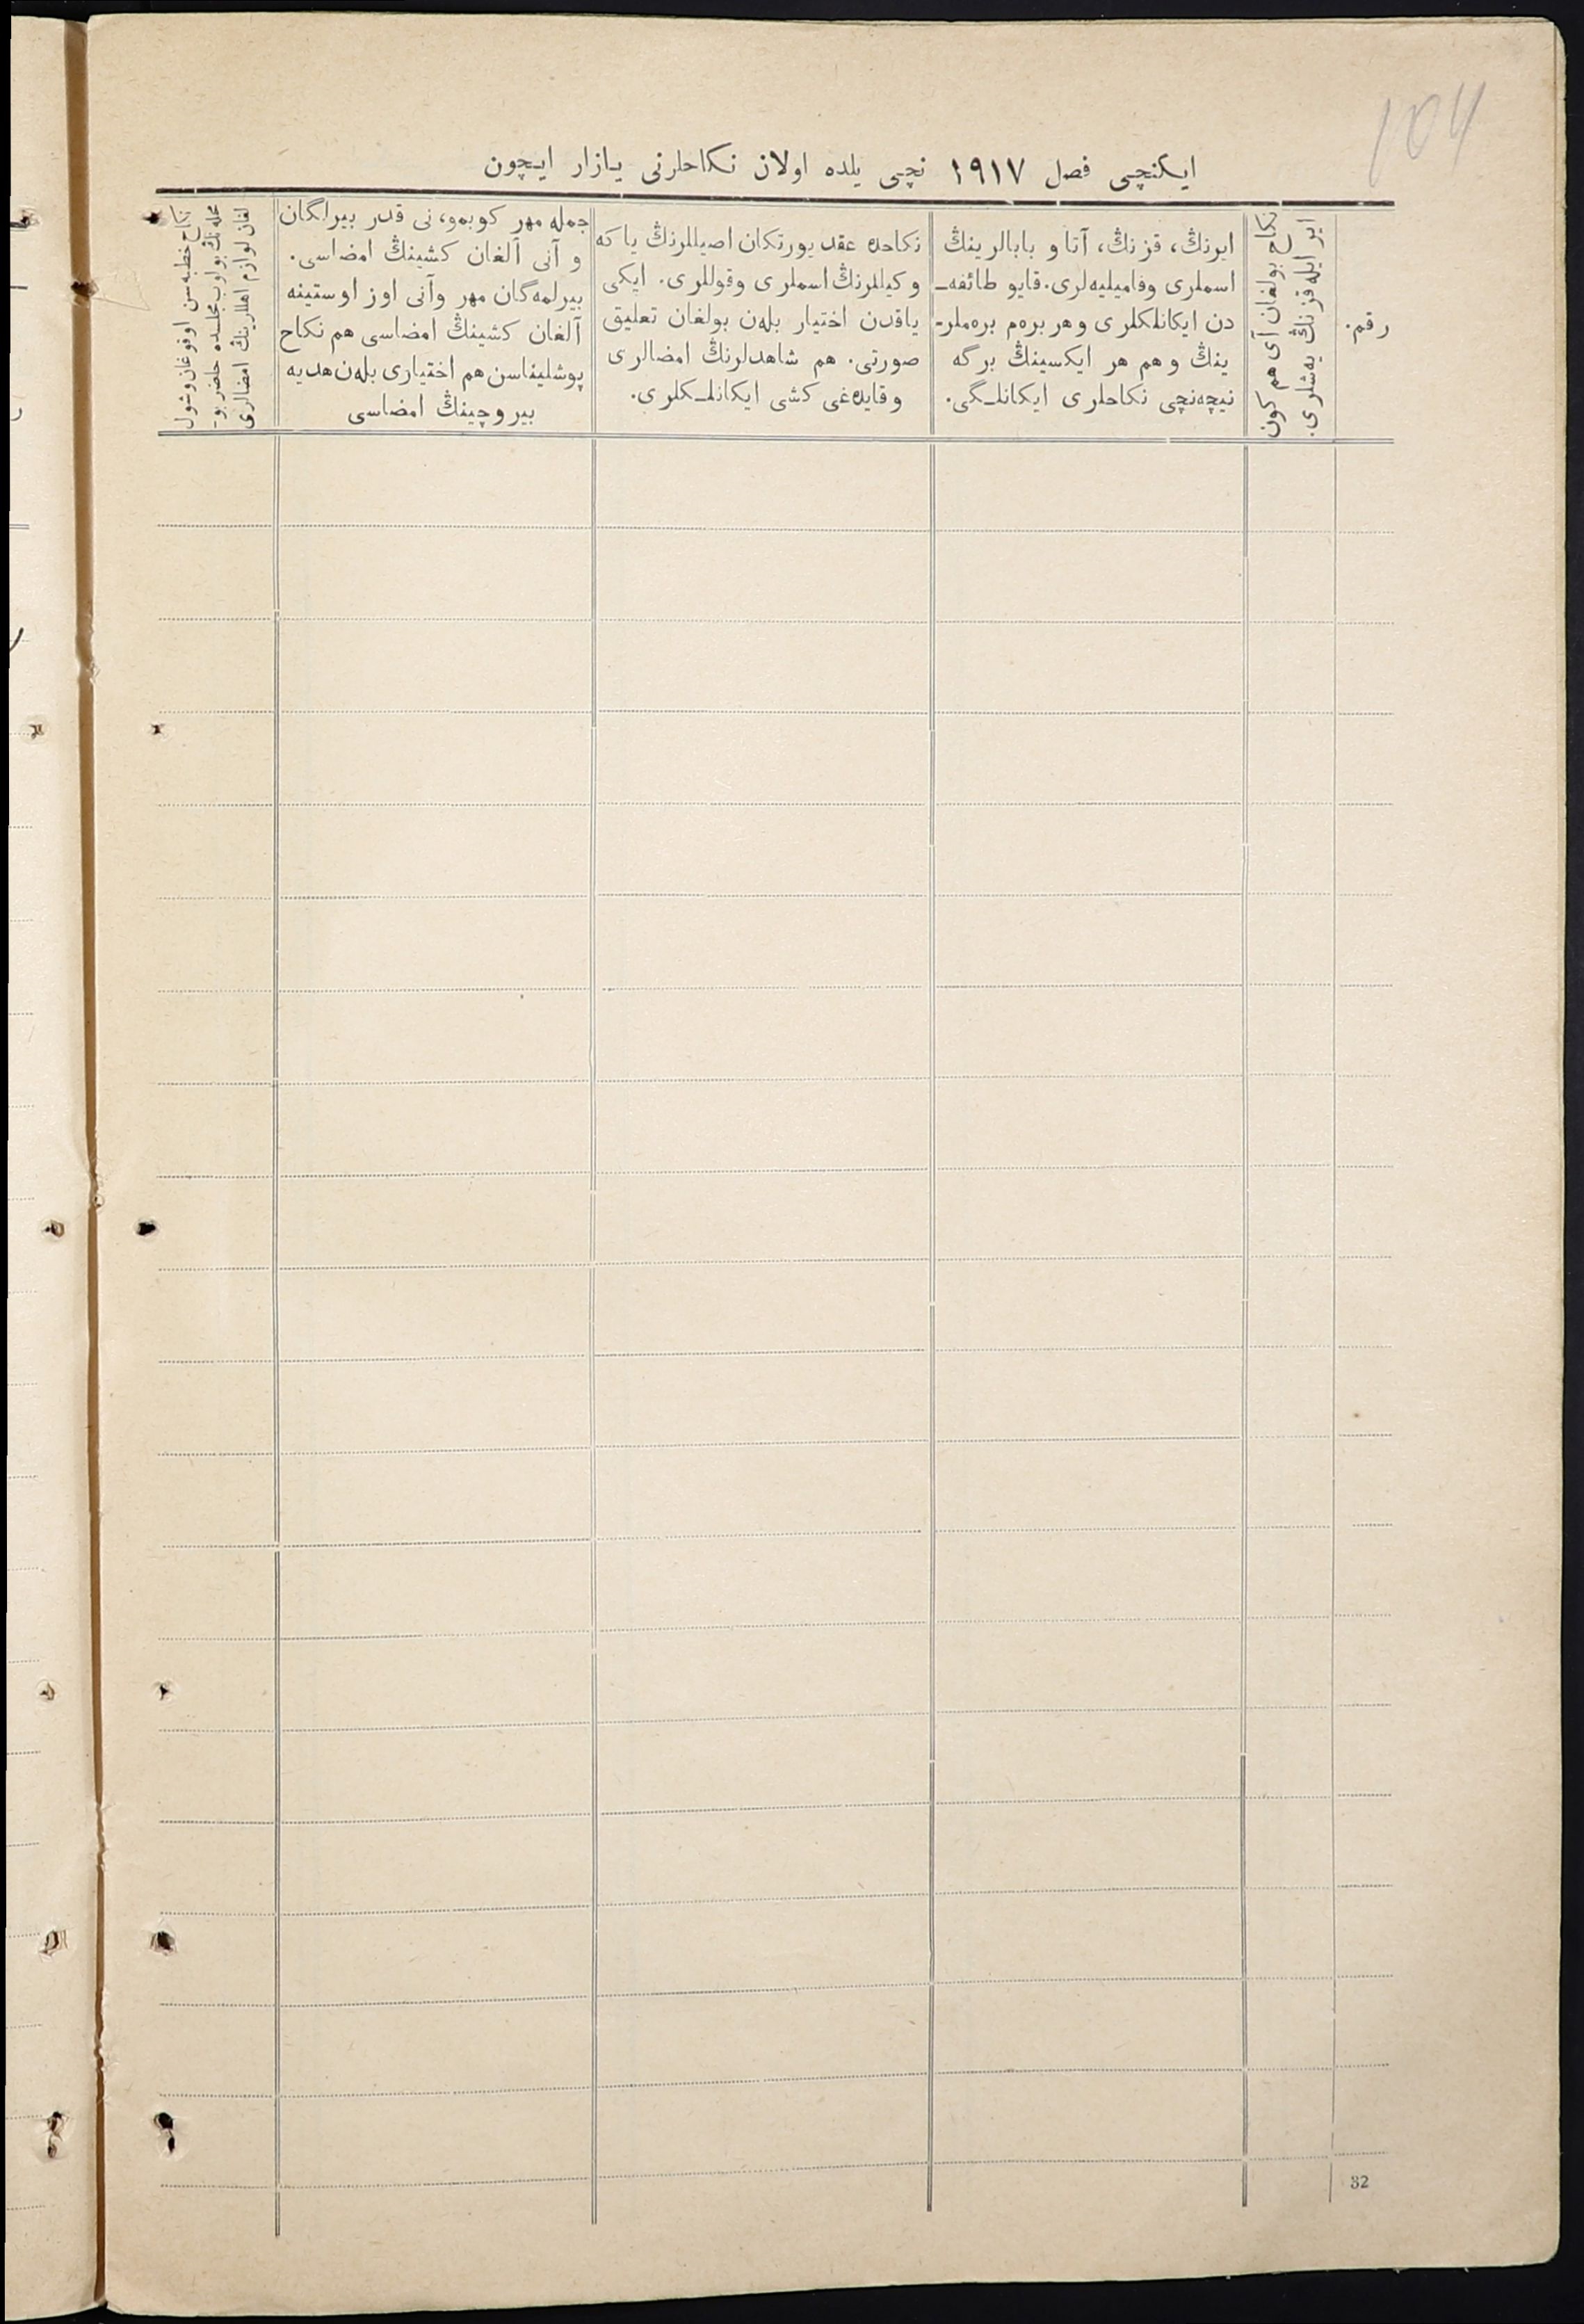 104
ایکنچی فصل ۱۹۱۷ نچی یلده اولان نکاحلرنی یازار ایچون
رقم.
نکاح بولغان آی هم کون
ایر ایله قزنڭ یه‌شلری.
ایرنڭ، قزنڭ، آتا و بابالرینڭ
اسملری وفامیلیه‌لری. قایو طائفه‌ـ
دن ایکانلکلری وهر بره‌م بره‌ملر-
ینڭ وهم هر ایکسینڭ برگه
نیچه‌نچی نکاحلری ایکانلـگی.
نکاحده عقد یورتکان اصیللرنڭ یا که
وکیللرنڭ اسملری وقوللری. ایکی
یاقدن اختیار بله‌ن بولغان تعلیق
صورتی. هم شاهدلرنڭ امضالری
وقایده‌غی کشی ایکانلـکلری.
جمله مهر کوبمو، نی قدر بیرلگان
و آنی آلغان کشینڭ امضاسی.
بیرلمه‌گان مهر وآنی اوز اوستینه
آلغان کشینڭ امضاسی هم نکاح
پوشلیناسن هم اختیاری بله‌ن هدیه
بیروچینڭ امضاسی
نکاح خطبه‌سن اوقوغان وشول
محله‌نڭ بولوب مجلسده حاضر بو-
لغان لوازم اهللرینڭ امضالری
32